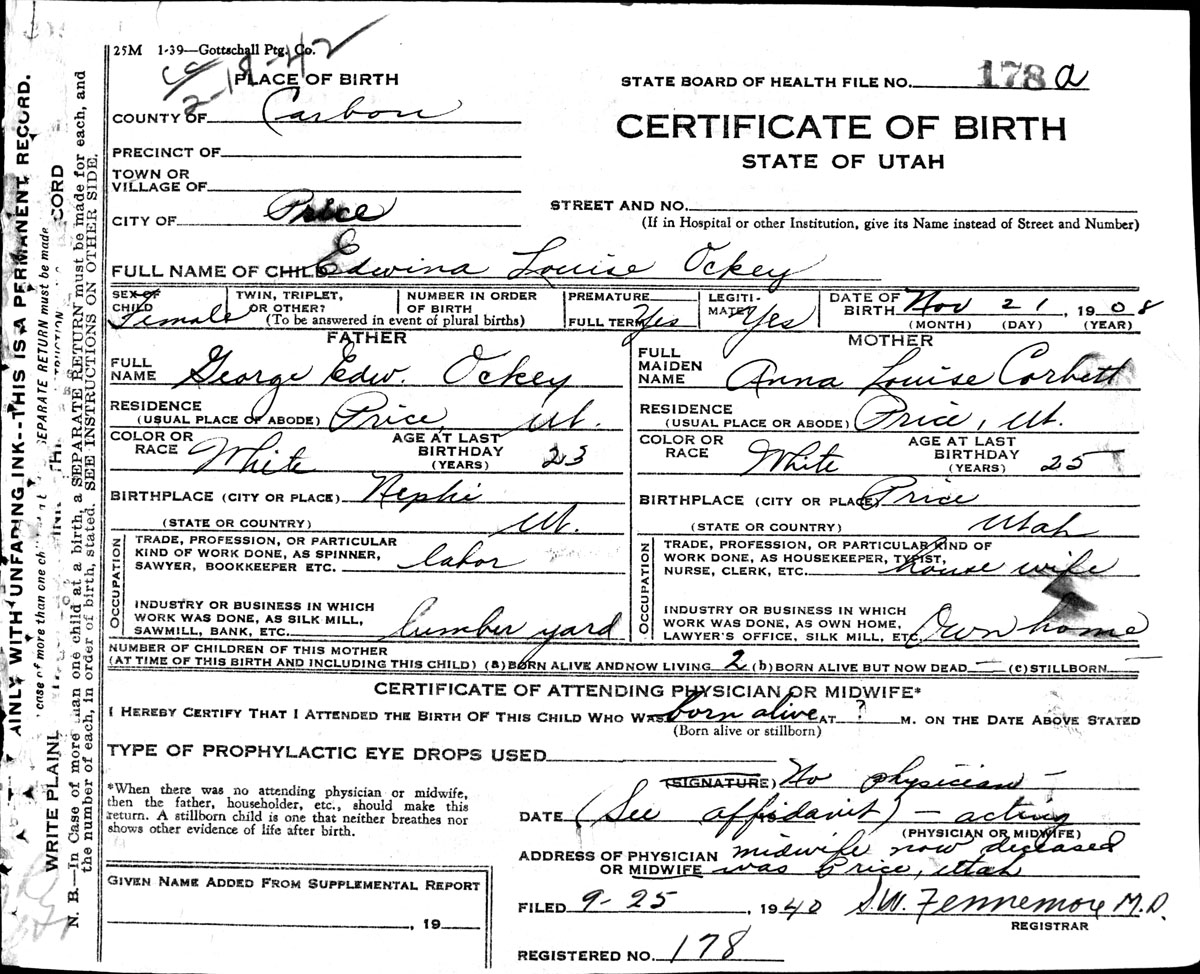 25M 1-39—Gottschall Ptg. Co.
2-18-42
PLACE OF BIRTH
STATE BOARD OF HEALTH FILE NO. 178 a
COUNTY OF Carbon
CERTIFICATE OF BIRTH
PRECINCT OF
STATE OF UTAH
TOWN OR
VILLAGE OF
CITY OF Price
STREET AND NO.
(If in Hospital or other Institution, give its Name instead of Street and Number)
FULL NAME OF CHILD Edwina Louise Ockey
SEX OF CHILD Female
TWIN, TRIPLET, OR OTHER?
NUMBER IN ORDER OF BIRTH
(To be answered in event of plural births)
PREMATURE
FULL TERM Yes
LEGITIMATE? Yes
DATE OF BIRTH Nov 21, 1908
(MONTH) (DAY) (YEAR)
FATHER
FULL NAME George Edw. Ockey
RESIDENCE (USUAL PLACE OF ABODE) Price, Ut.
COLOR OR RACE White
AGE AT LAST BIRTHDAY (YEARS) 23
BIRTHPLACE (CITY OR PLACE) Nephi
(STATE OR COUNTRY) Ut.
OCCUPATION
TRADE, PROFESSION, OR PARTICULAR
KIND OF WORK DONE, AS SPINNER,
SAWYER, BOOKKEEPER ETC. labor
INDUSTRY OR BUSINESS IN WHICH
WORK WAS DONE, AS SILK MILL,
SAWMILL, BANK, ETC. lumber yard
MOTHER
FULL MAIDEN NAME Anna Louise Corbett
RESIDENCE (USUAL PLACE OR ABODE) Price, Ut.
COLOR OR RACE White
AGE AT LAST BIRTHDAY (YEARS) 25
BIRTHPLACE (CITY OR PLACE) Price
(STATE OR COUNTRY) Utah
OCCUPATION
TRADE, PROFESSION, OR PARTICULAR KIND OF
WORK DONE, AS HOUSEKEEPER, TYPIST,
NURSE, CLERK, ETC. house wife
INDUSTRY OR BUSINESS IN WHICH
WORK WAS DONE, AS OWN HOME,
LAWYER'S OFFICE, SILK MILL, ETC. Own home
NUMBER OF CHILDREN OF THIS MOTHER
(AT TIME OF THIS BIRTH AND INCLUDING THIS CHILD) (a) BORN ALIVE AND NOW LIVING 2 (b) BORN ALIVE BUT NOW DEAD — (c) STILLBORN —
CERTIFICATE OF ATTENDING PHYSICIAN OR MIDWIFE*
I HEREBY CERTIFY THAT I ATTENDED THE BIRTH OF THIS CHILD WHO WAS born alive AT ? M. ON THE DATE ABOVE STATED
(Born alive or stillborn)
TYPE OF PROPHYLACTIC EYE DROPS USED
*When there was no attending physician or midwife,
then the father, householder, etc., should make this
return. A stillborn child is one that neither breathes nor
shows other evidence of life after birth.
(SIGNATURE) No physician —
DATE (See affidavit) — acting
(PHYSICIAN OR MIDWIFE)
ADDRESS OF PHYSICIAN midwife now deceased
OR MIDWIFE was Price, Utah
GIVEN NAME ADDED FROM SUPPLEMENTAL REPORT
, 19
FILED 9-25, 1940 S.W. Fennemore M.D.
REGISTRAR
REGISTERED NO. 178
AINLY WITH UNFADING INK--THIS IS A PERMANENT RECORD.
WRITE PLAINL
case of more than one chi
SEPARATE RETURN must be made
N. B.—In Case of more than one child at a birth, a SEPARATE RETURN must be made for each, and
the number of each, in order of birth, stated. SEE INSTRUCTIONS ON OTHER SIDE.